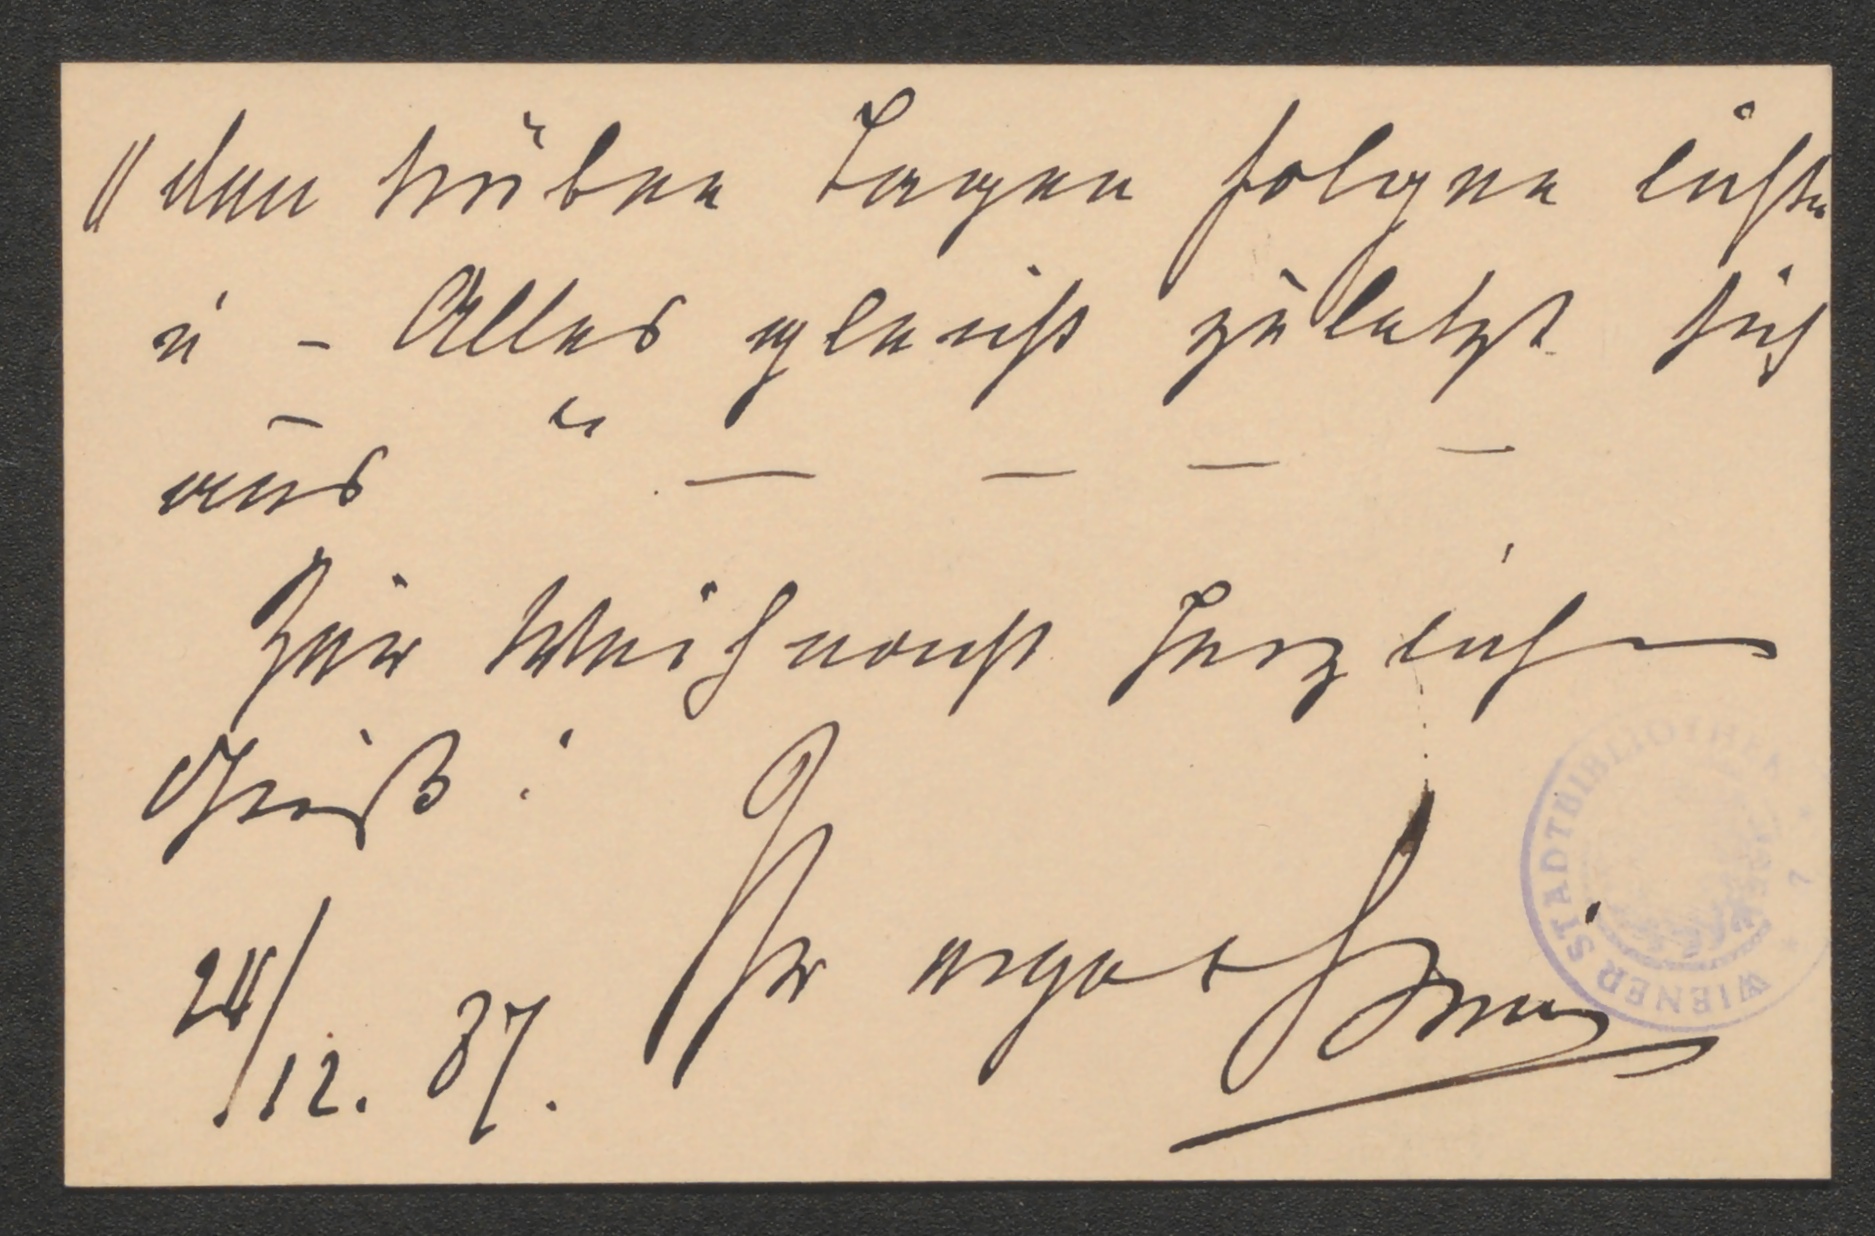 „den trüben Tagen folgen lichte
u – Alles gleicht zuletzt sich
aus“ — — — —
Zur Weihnacht herzlich
Gruß!
Ihr
24/12. 87.
WIENER STADTBIBLIOTHEK